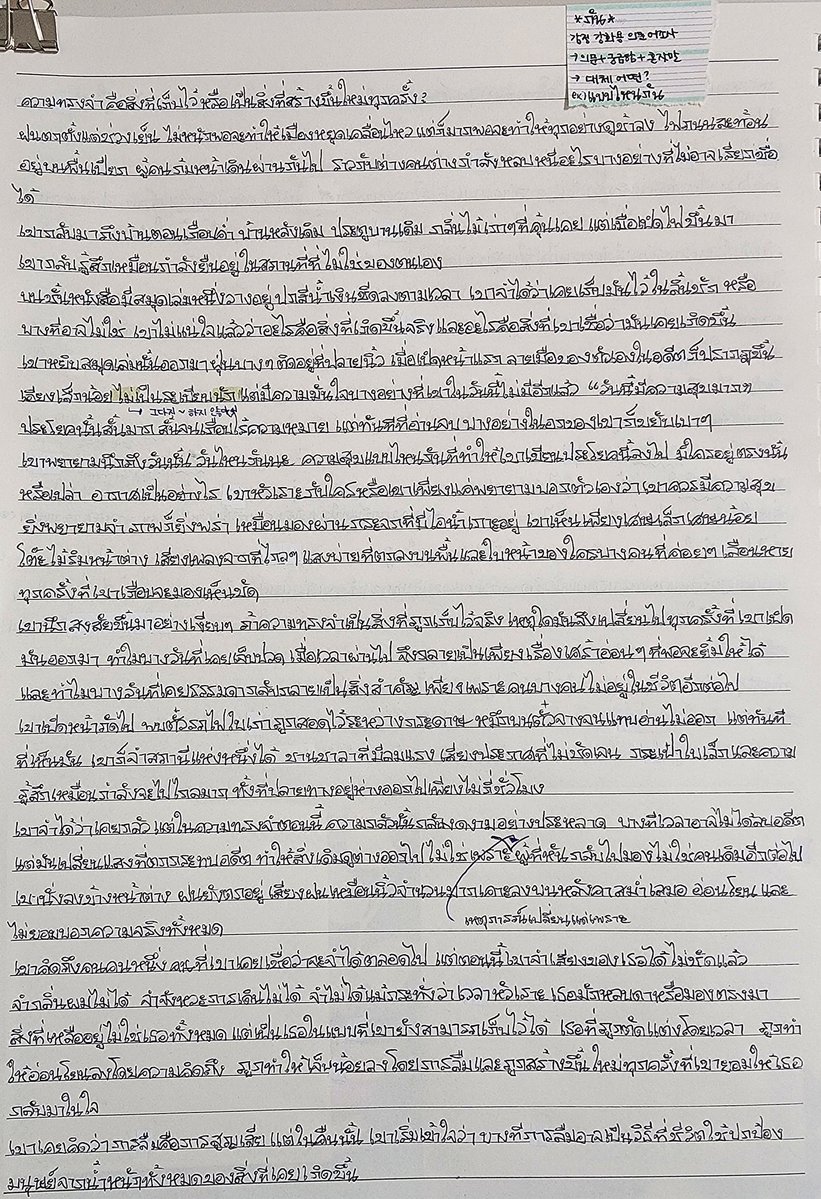 *กัน*
감정 강화용 의문 어조사
→ 의문+궁금함+혼잣말
→ 대체 어떤?
ex) แบบไหนกัน
ความทรงจำคือสิ่งที่เก็บไว้หรือเป็นสิ่งที่สร้างขึ้นใหม่ทุกครั้ง?
ฝนตกตั้งแต่ช่วงเย็น ไม่หนักพอจะทำให้เมืองหยุดเคลื่อนไหว แต่ก็มากพอจะทำให้ทุกอย่างดูช้าลง ไฟถนนสะท้อน
อยู่บนพื้นเปียก ผู้คนก้มหน้าเดินผ่านกันไป ราวกับต่างคนต่างกำลังหลบหนีอะไรบางอย่างที่ไม่อาจเรียกชื่อ
ได้
เขากลับมาถึงบ้านตอนเกือบค่ำ บ้านหลังเดิม ประตูบานเดิม กลิ่นไม้เก่าๆที่คุ้นเคย แต่เมื่อเปิดไฟขึ้นมา
เขากลับรู้สึกเหมือนกำลังยืนอยู่ในสถานที่ที่ไม่ใช่ของตนเอง
บนชั้นหนังสือมีสมุดเล่มหนึ่งวางอยู่ ปกสีน้ำเงินซีดลงตามเวลา เขาจำได้ว่าเคยเก็บมันไว้ในลิ้นชัก หรือ
บางทีอาจไม่ใช่ เขาไม่แน่ใจแล้วว่าอะไรคือสิ่งที่เกิดขึ้นจริง และอะไรคือสิ่งที่เขาเชื่อว่ามันเคยเกิดขึ้น
เขาหยิบสมุดเล่มนั้นออกมา ฝุ่นบางๆติดอยู่ที่ปลายนิ้ว เมื่อเปิดหน้าแรก ลายมือของตัวเองในอดีตก็ปรากฏขึ้น
เอียงเล็กน้อย ไม่เป็นระเบียบนัก แต่มีความมั่นใจบางอย่างที่เขาในวันนี้ไม่มีอีกแล้ว "วันนี้มีความสุขมาก"
→ 그다지 ~ 하지 않
ประโยคนั้นสั้นมาก สั้นจนเกือบไร้ความหมาย แต่ทันทีที่อ่านจบ บางอย่างในอกของเขาก็ขยับเบาๆ
เขาพยายามนึกถึงวันนั้น วันไหนกันนะ ความสุขแบบไหนกันที่ทำให้เขาเขียนประโยคนี้ลงไป มีใครอยู่ตรงนั้น
หรือเปล่า อากาศเป็นอย่างไร เขาหัวเราะกับใครหรือเขาเพียงแค่พยายามบอกตัวเองว่าเขาควรมีความสุข
ยิ่งพยายามจำ ภาพก็ยิ่งพร่า เหมือนมองผ่านกระจกที่มีไอน้ำเกาะอยู่ เขาเห็นเพียงเศษเล็กเศษน้อย
โต๊ะไม้ริมหน้าต่าง เสียงเพลงจากที่ไกลๆ แสงบ่ายที่ตกลงบนพื้นและใบหน้าของใครบางคนที่ค่อยๆ เลือนหาย
ทุกครั้งที่เขาเกือบจะมองเห็นชัด
เขานึกสงสัยขึ้นมาอย่างเงียบๆ ถ้าความทรงจำเป็นสิ่งที่ถูกเก็บไว้จริง เหตุใดมันจึงเปลี่ยนไปทุกครั้งที่เขาเปิด
มันออกมา ทำไมบางวันที่เคยเจ็บปวด เมื่อเวลาผ่านไป จึงกลายเป็นเพียงเรื่องเศร้าอ่อนๆ ที่พอจะยิ้มให้ได้
และทำไมบางวันที่เคยธรรมดากลับกลายเป็นสิ่งสำคัญ เพียงเพราะคนบางคนไม่อยู่ในชีวิตอีกต่อไป
เขาเปิดหน้าถัดไป พบตั๋วรถไฟใบเก่าถูกสอดไว้ระหว่างกระดาษ หมึกบนตั๋วจางจนแทบอ่านไม่ออก แต่ทันที
ที่เห็นมัน เขาก็จำสถานีแห่งหนึ่งได้ ชานชาลาที่มีลมแรง เสียงประกาศที่ไม่ชัดเจน กระเป๋าใบเล็กและความ
รู้สึกเหมือนกำลังจะไปไกลมาก ทั้งที่ปลายทางอยู่ห่างออกไปเพียงไม่กี่ชั่วโมง
เขาจำได้ว่าเคยกลัว แต่ในความทรงจำตอนนี้ ความกลัวนั้นกลับงดงามอย่างประหลาด บางทีเวลาอาจไม่ได้ลบอดีต
แต่มันเปลี่ยนแสงที่ตกกระทบอดีต ทำให้สิ่งเดิมดูต่างออกไป ไม่ใช่เพราะผู้ที่หันกลับไปมองไม่ใช่คนเดิมอีกต่อไป
เขานั่งลงข้างหน้าต่าง ฝนยังตกอยู่ เสียงฝนเหมือนนิ้วจำนวนมากเคาะลงบนหลังคาสม่ำเสมอ อ่อนโยน และ
เหตุการณ์เปลี่ยนแต่เพราะ
ไม่ยอมบอกความจริงทั้งหมด
เขาคิดถึงคนคนหนึ่ง คนที่เขาเคยเชื่อว่าจะจำได้ตลอดไป แต่ตอนนี้เขาจำเสียงของเธอได้ไม่ชัดแล้ว
จำกลิ่นผมไม่ได้ จำจังหวะการเดินไม่ได้ จำไม่ได้แม้กระทั่งว่าเวลาหัวเราะ เธอมักหลบตาหรือมองตรงมา
สิ่งที่เหลืออยู่ไม่ใช่เธอทั้งหมด แต่เป็นเธอในแบบที่เขายังสามารถเก็บไว้ได้ เธอที่ถูกตัดแต่งโดยเวลา ถูกทำ
ให้อ่อนโยนลงโดยความคิดถึง ถูกทำให้เจ็บน้อยลงโดยการลืมและถูกสร้างขึ้นใหม่ทุกครั้งที่เขายอมให้เธอ
กลับมาในใจ
เขาเคยคิดว่าการลืมคือการสูญเสีย แต่ในคืนนั้น เขาเริ่มเข้าใจว่า บางทีการลืมอาจเป็นวิธีที่ชีวิตใช้ปกป้อง
มนุษย์จากน้ำหนักทั้งหมดของสิ่งที่เคยเกิดขึ้น